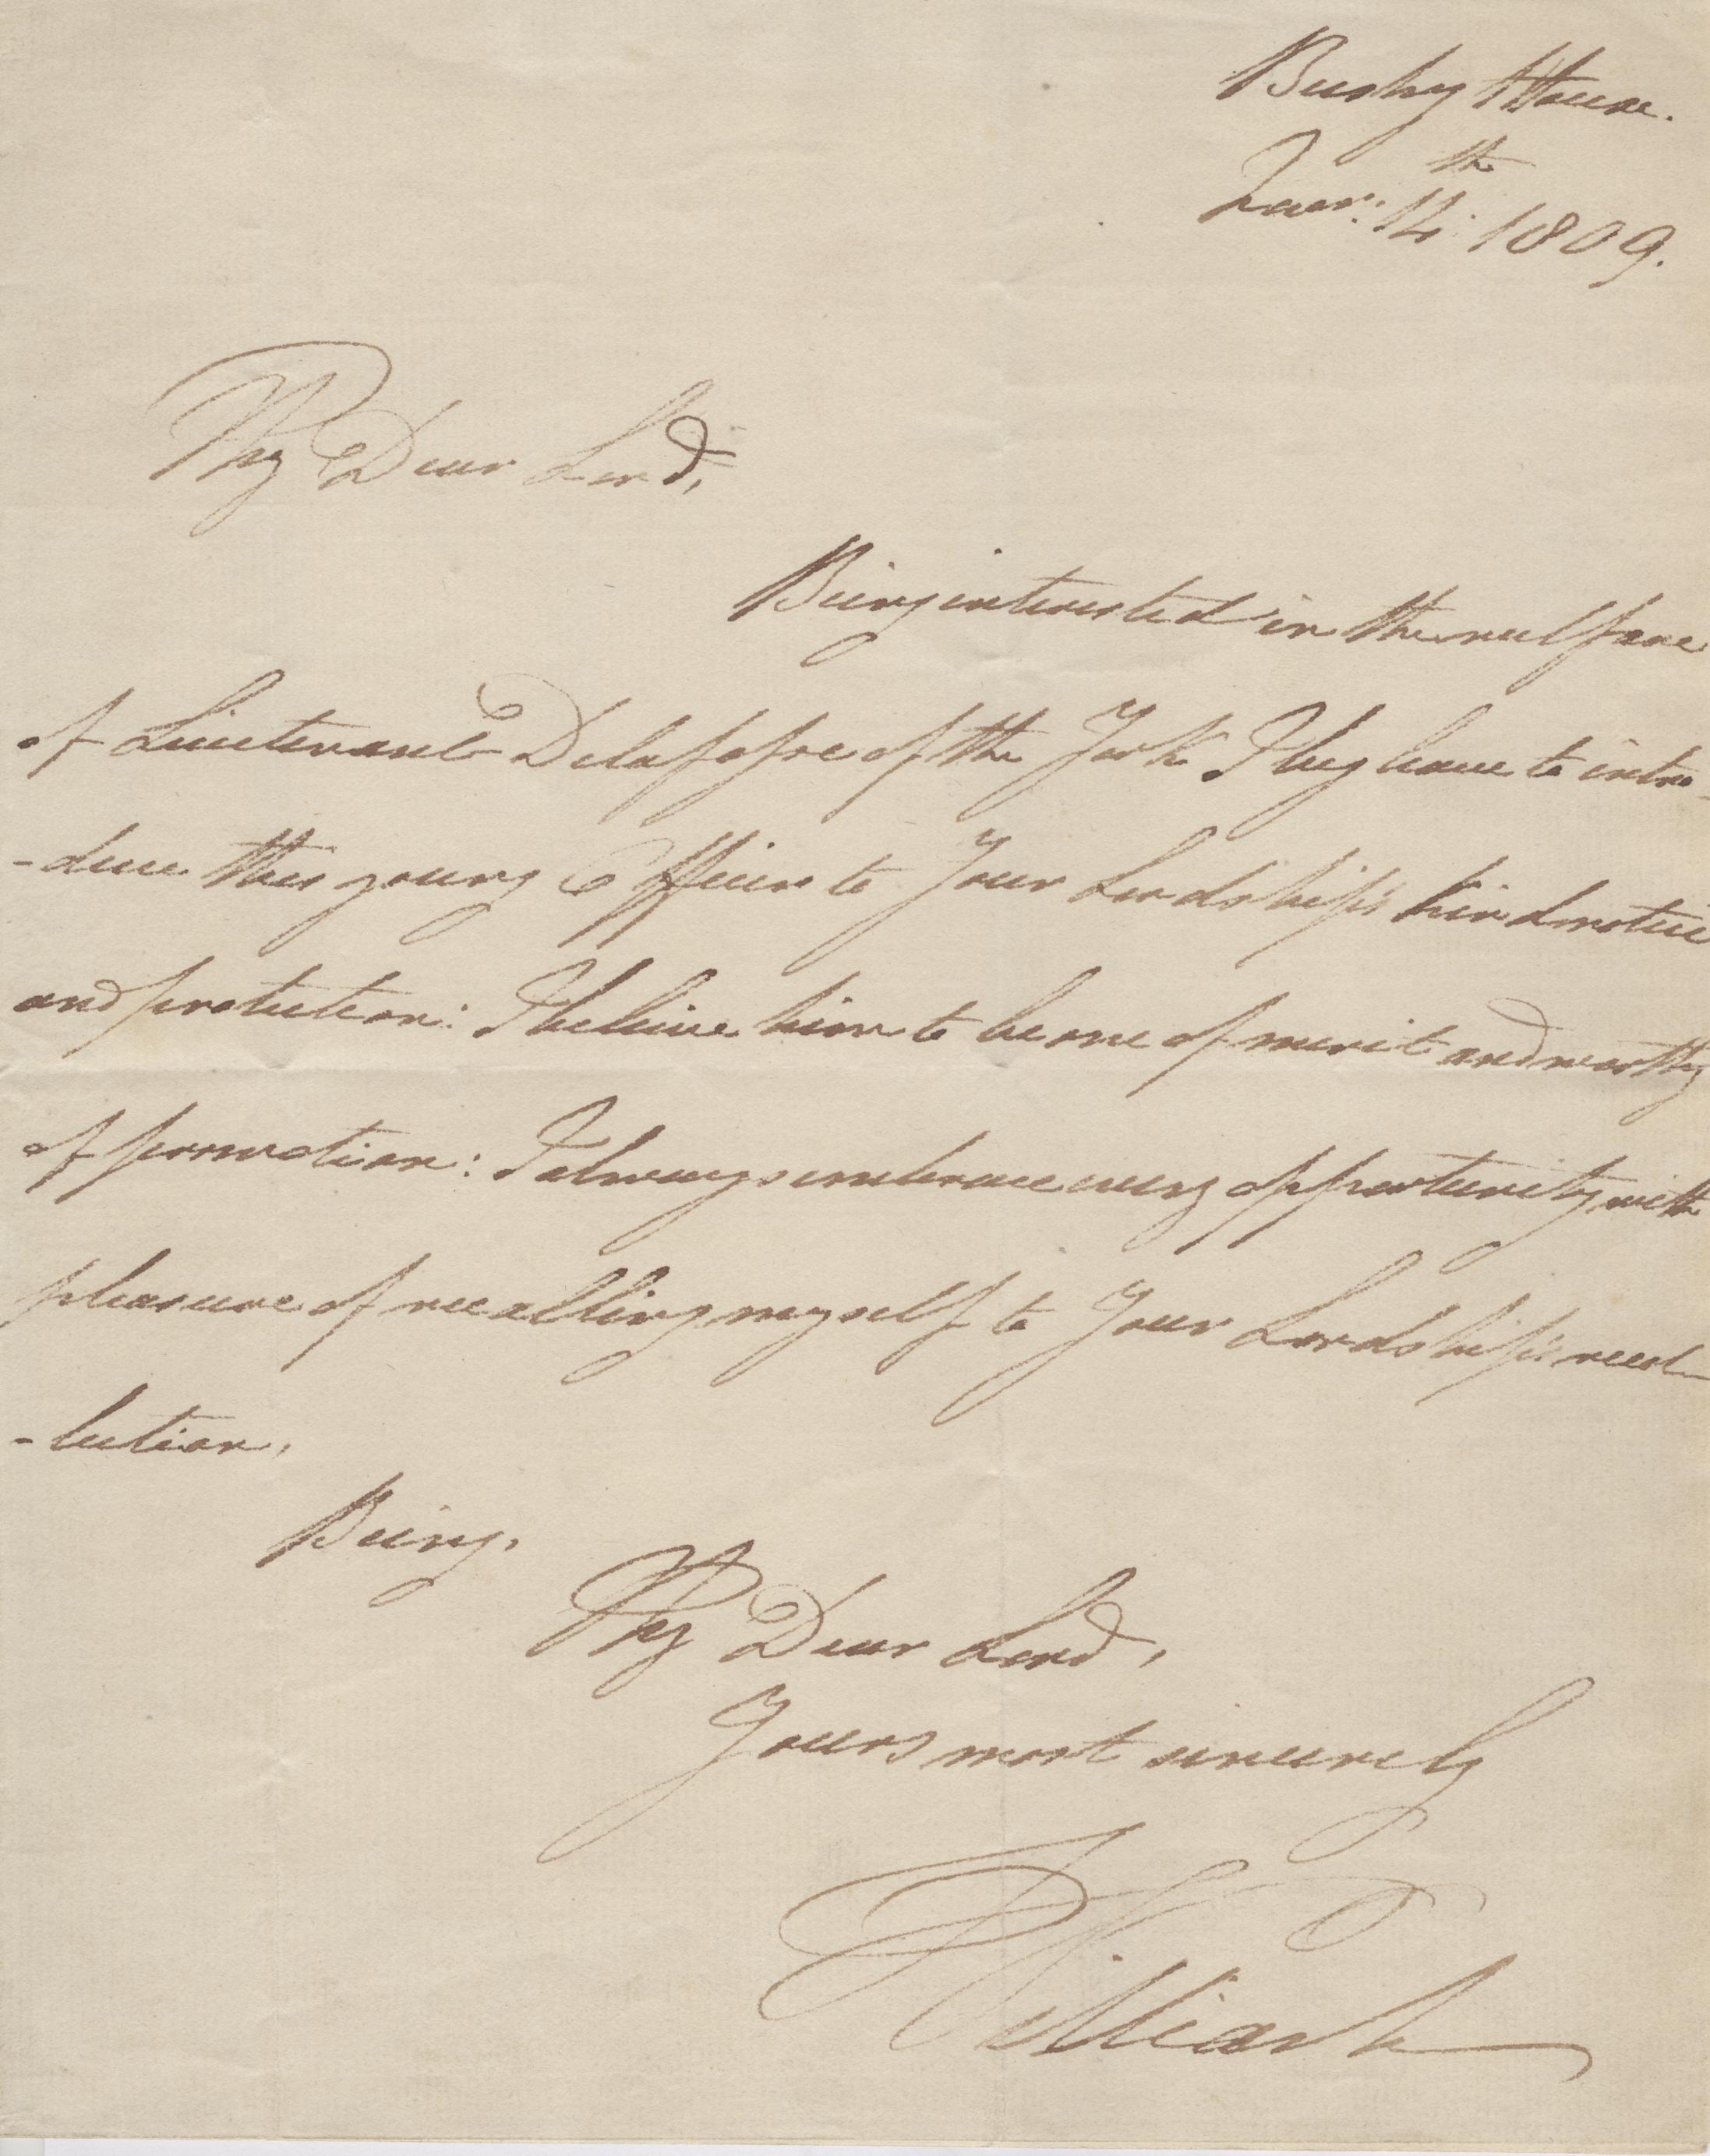 Bushy House.
Janr: 14th 1809.
My Dear Lord,
Being interested in the welfare
of Lieutenant Delafosse of the York I beg leave to intro
-duce this young Officer to Your Lordship's kind notice
and protection: I believe him to be one of merit and worthy
of promotion: I always embrace every opportunity with
pleasure of recalling myself to Your Lordship's recol
-lection,
Being,
My Dear Lord,
Yours most sincerely
William